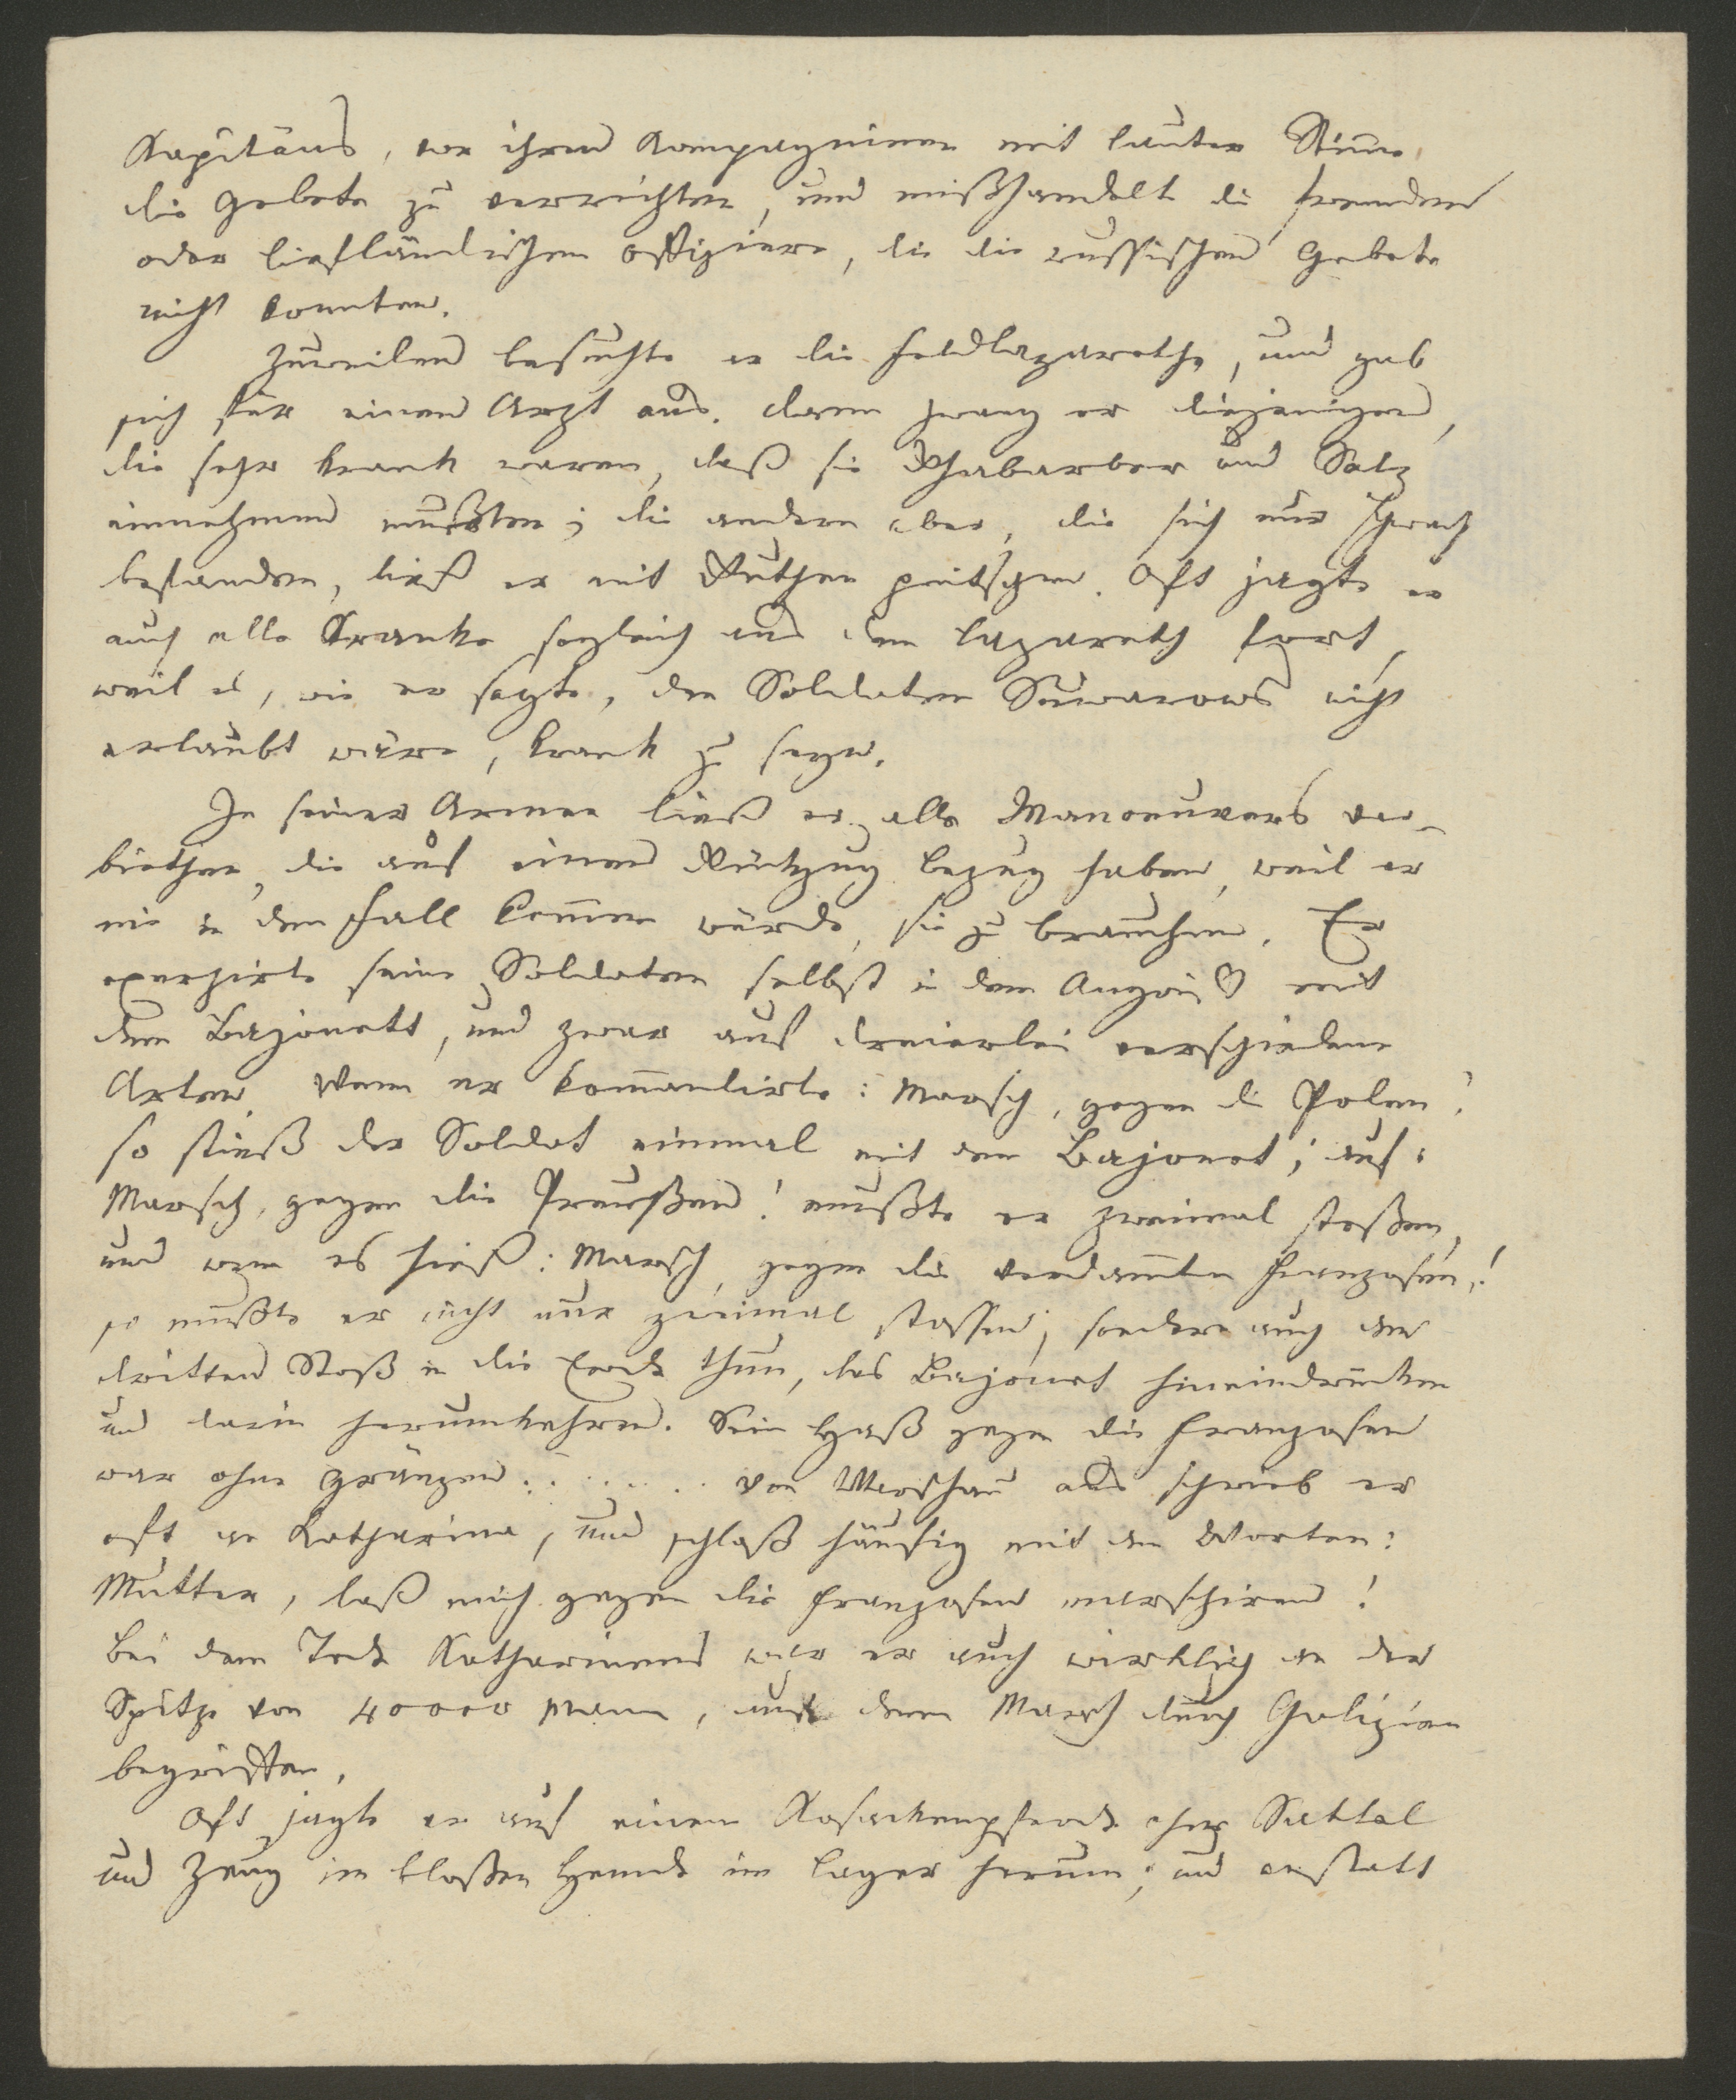 Kapitäns, vor ihren Kompagnieen mit lauter Stim̅e
die Gebete zu verrichten, und mißhandelte die fremden
oder liefländischen Offiziere, die die russischen Gebete
nicht konnten.
Zuweilen besuchte er die Feldlazarethe, und gab
sich für einen Arzt aus. dann zwang er diejenigen,
die sehr krank waren, daß sie Rhabarber und Salz
einnehmen mußten; die andern aber, die sich nur schwach
befanden, ließ er mit Ruthen peitschen. Oft jagte er
auch alle Kranke sogleich aus dem Lazareth fort,
weil es, wie er sagte, den Soldaten Suwarows nicht
erlaubt wäre, krank zu seyn.
In seiner Armee ließ er alle Manoeuvers ver-
biethen, die auf einen Rückzug bezug haben, weil er
nie in den Fall kom̅en würde, sie zu brauchen. Er
exerzirte seine Soldaten selbst in dem Angriff mit
dem Bajonett, und zwar auf dreierlei verschiedene
Arten. Wenn er kom̅andirte: Marsch, gegen die Polen!
so stieß der Soldat einmal mit dem Bajonet; auf:
Marsch, gegen die Preußen! mußte er zweimal stoßen,
und wenn es hieß: Marsch, gegen die verdam̅ten Franzosen!
so mußte er nicht nur zweimal stossen, sondern auch den
dritten Stoß in die Erde thun, das Bajonet hineindrücken
und darin herumkehren. Sein Haß gegen die Franzosen
war ohne Gränzen. . . . . . . Von Warschau aus schrieb er
oft an Katharina, und schloß häufig mit den Worten:
Mutter, laß mich gegen die Franzosen marschiren!
Bei dem Tode Katharinens war er auch wirklich an der
Spitze von 40000 Mann, auf dem Marsch durch Galizien
begriffen.
Oft jagte er auf einem Kosackenpferde ohne Sattel
und Zeug im bloßen Hemde im Lager herum; und anstatt